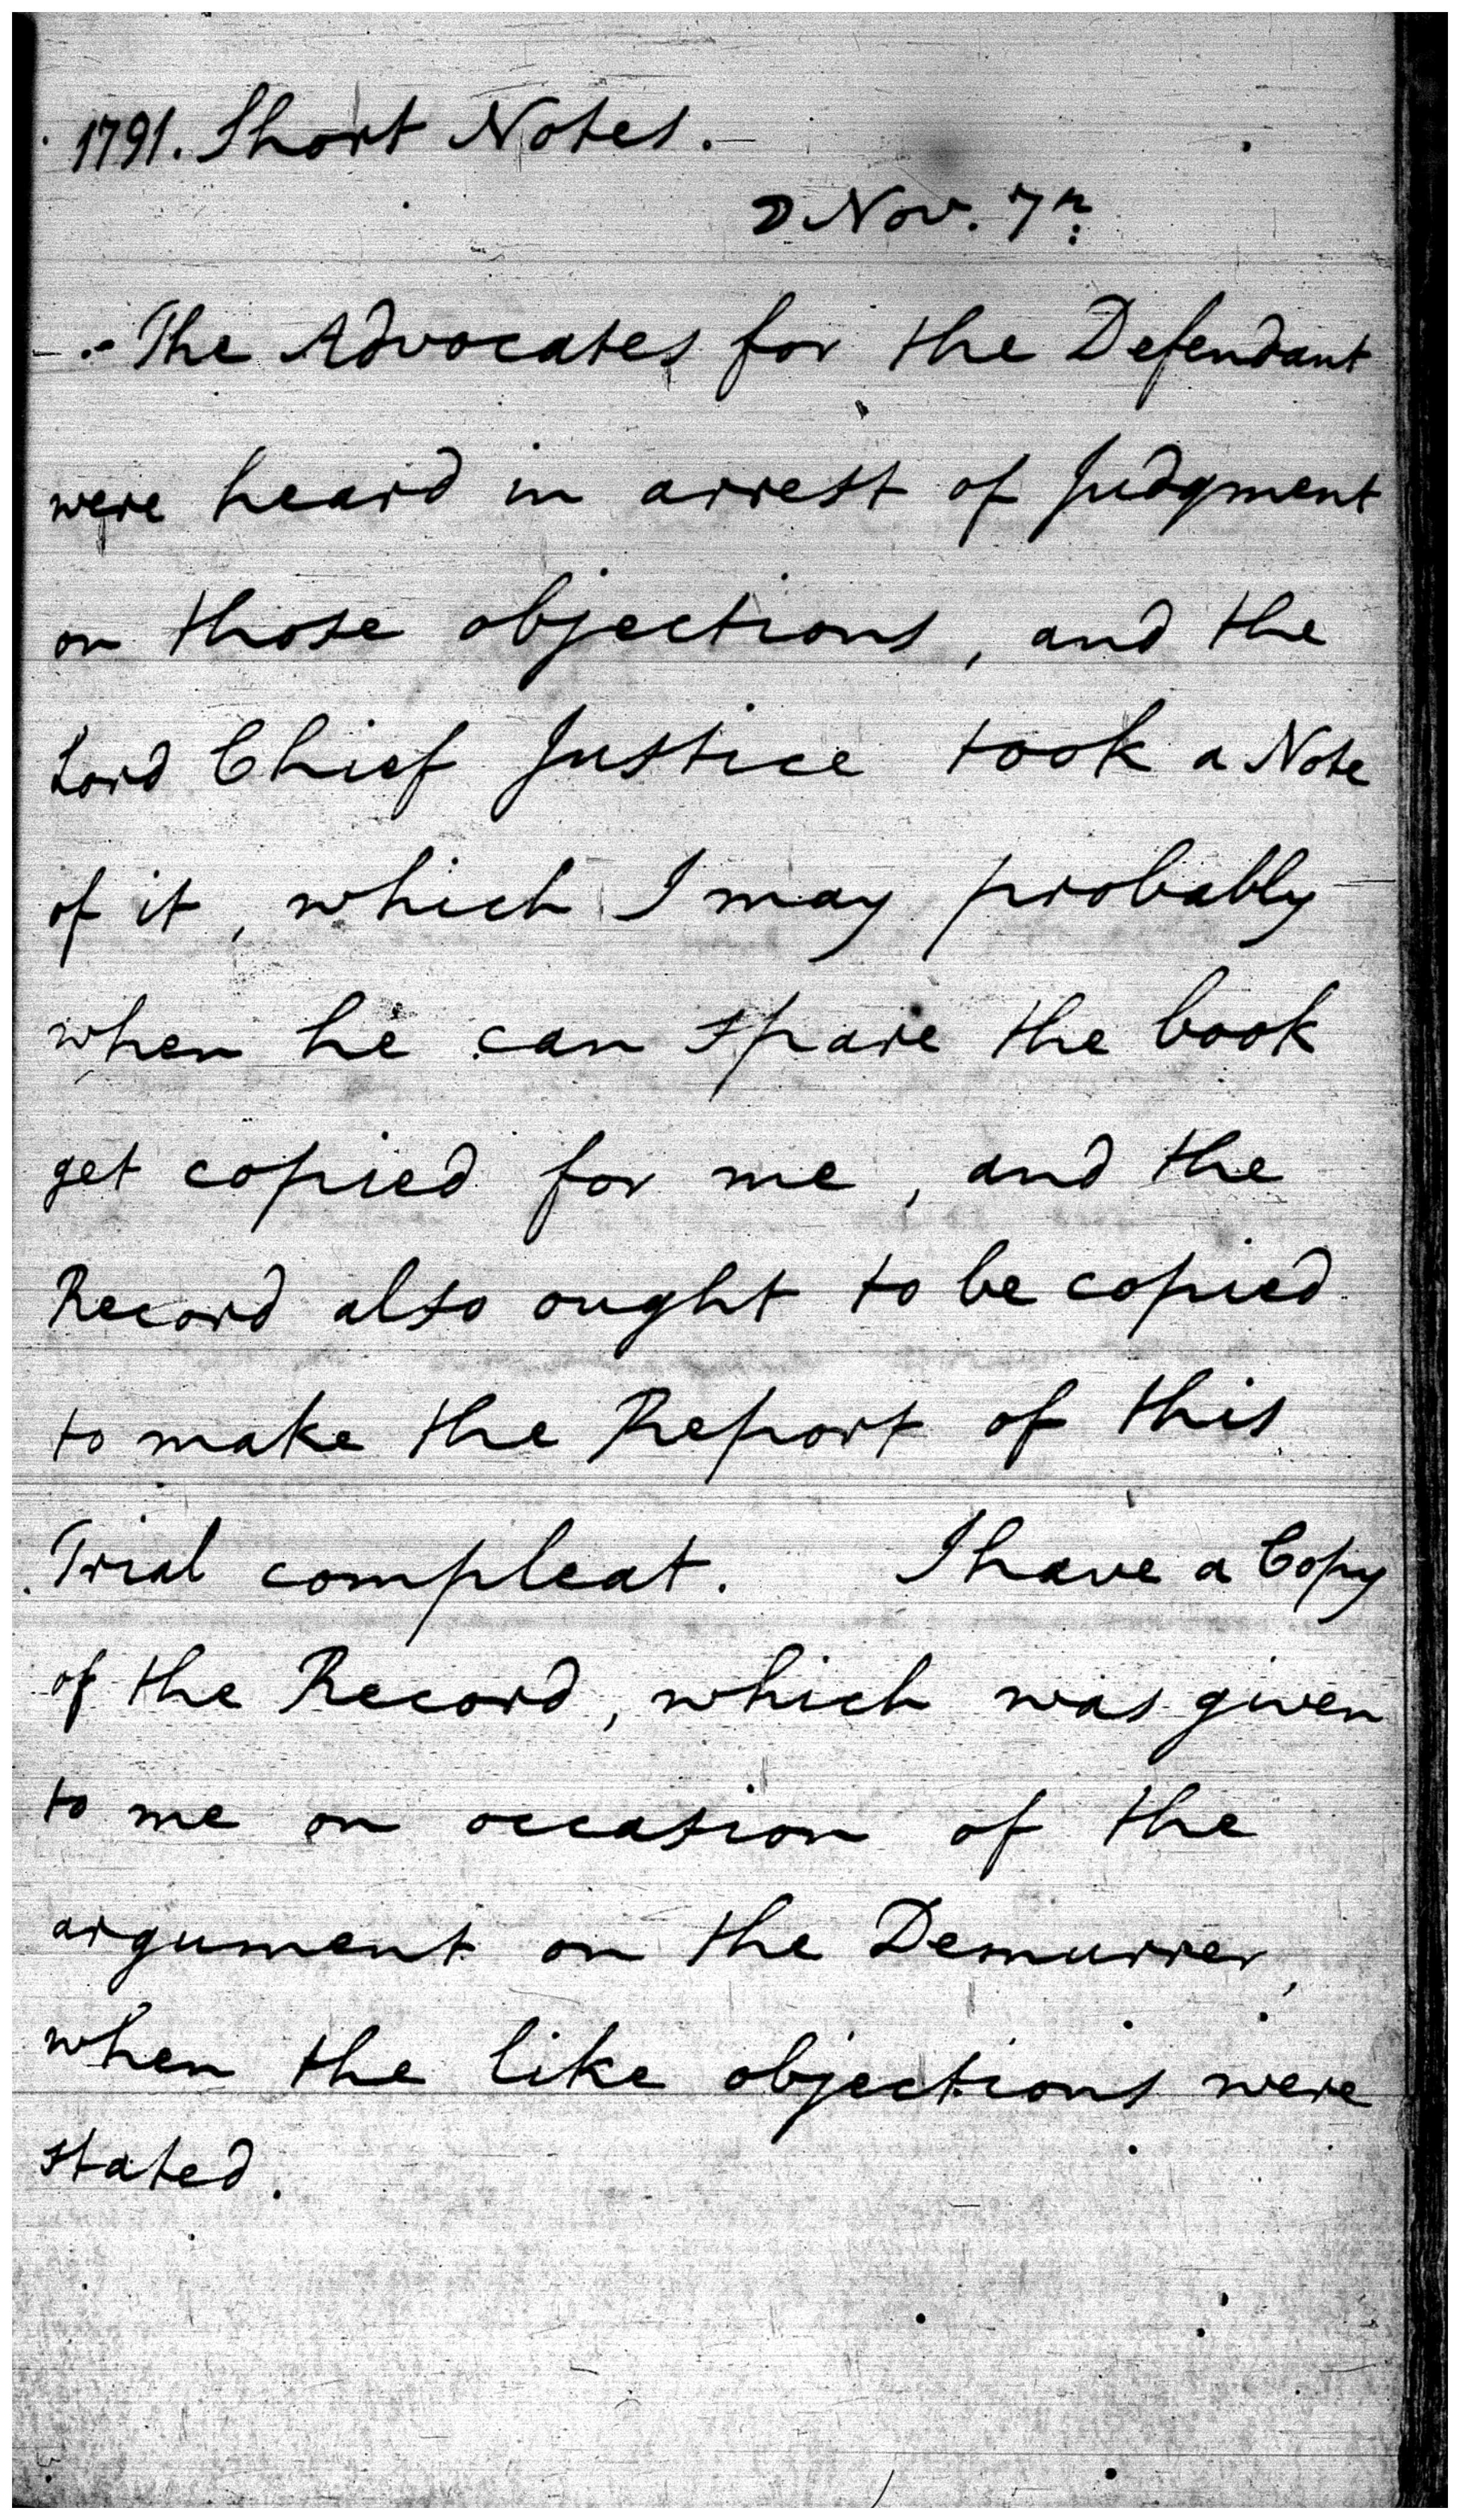 1791. Short Notes.
☽ Nov. 7th
The Advocates for the Defendant
were heard in arrest of Judgment
on those objections, and the
Lord Chief Justice took a Note
of it, which I may probably
when he can spare the book
get copied for me, and the
Record also ought to be copied
to make the Report of this
Trial compleat. I have a Copy
of the Record, which was given
to me on occasion of the
argument on the Demurrer,
when the like objections were
stated.